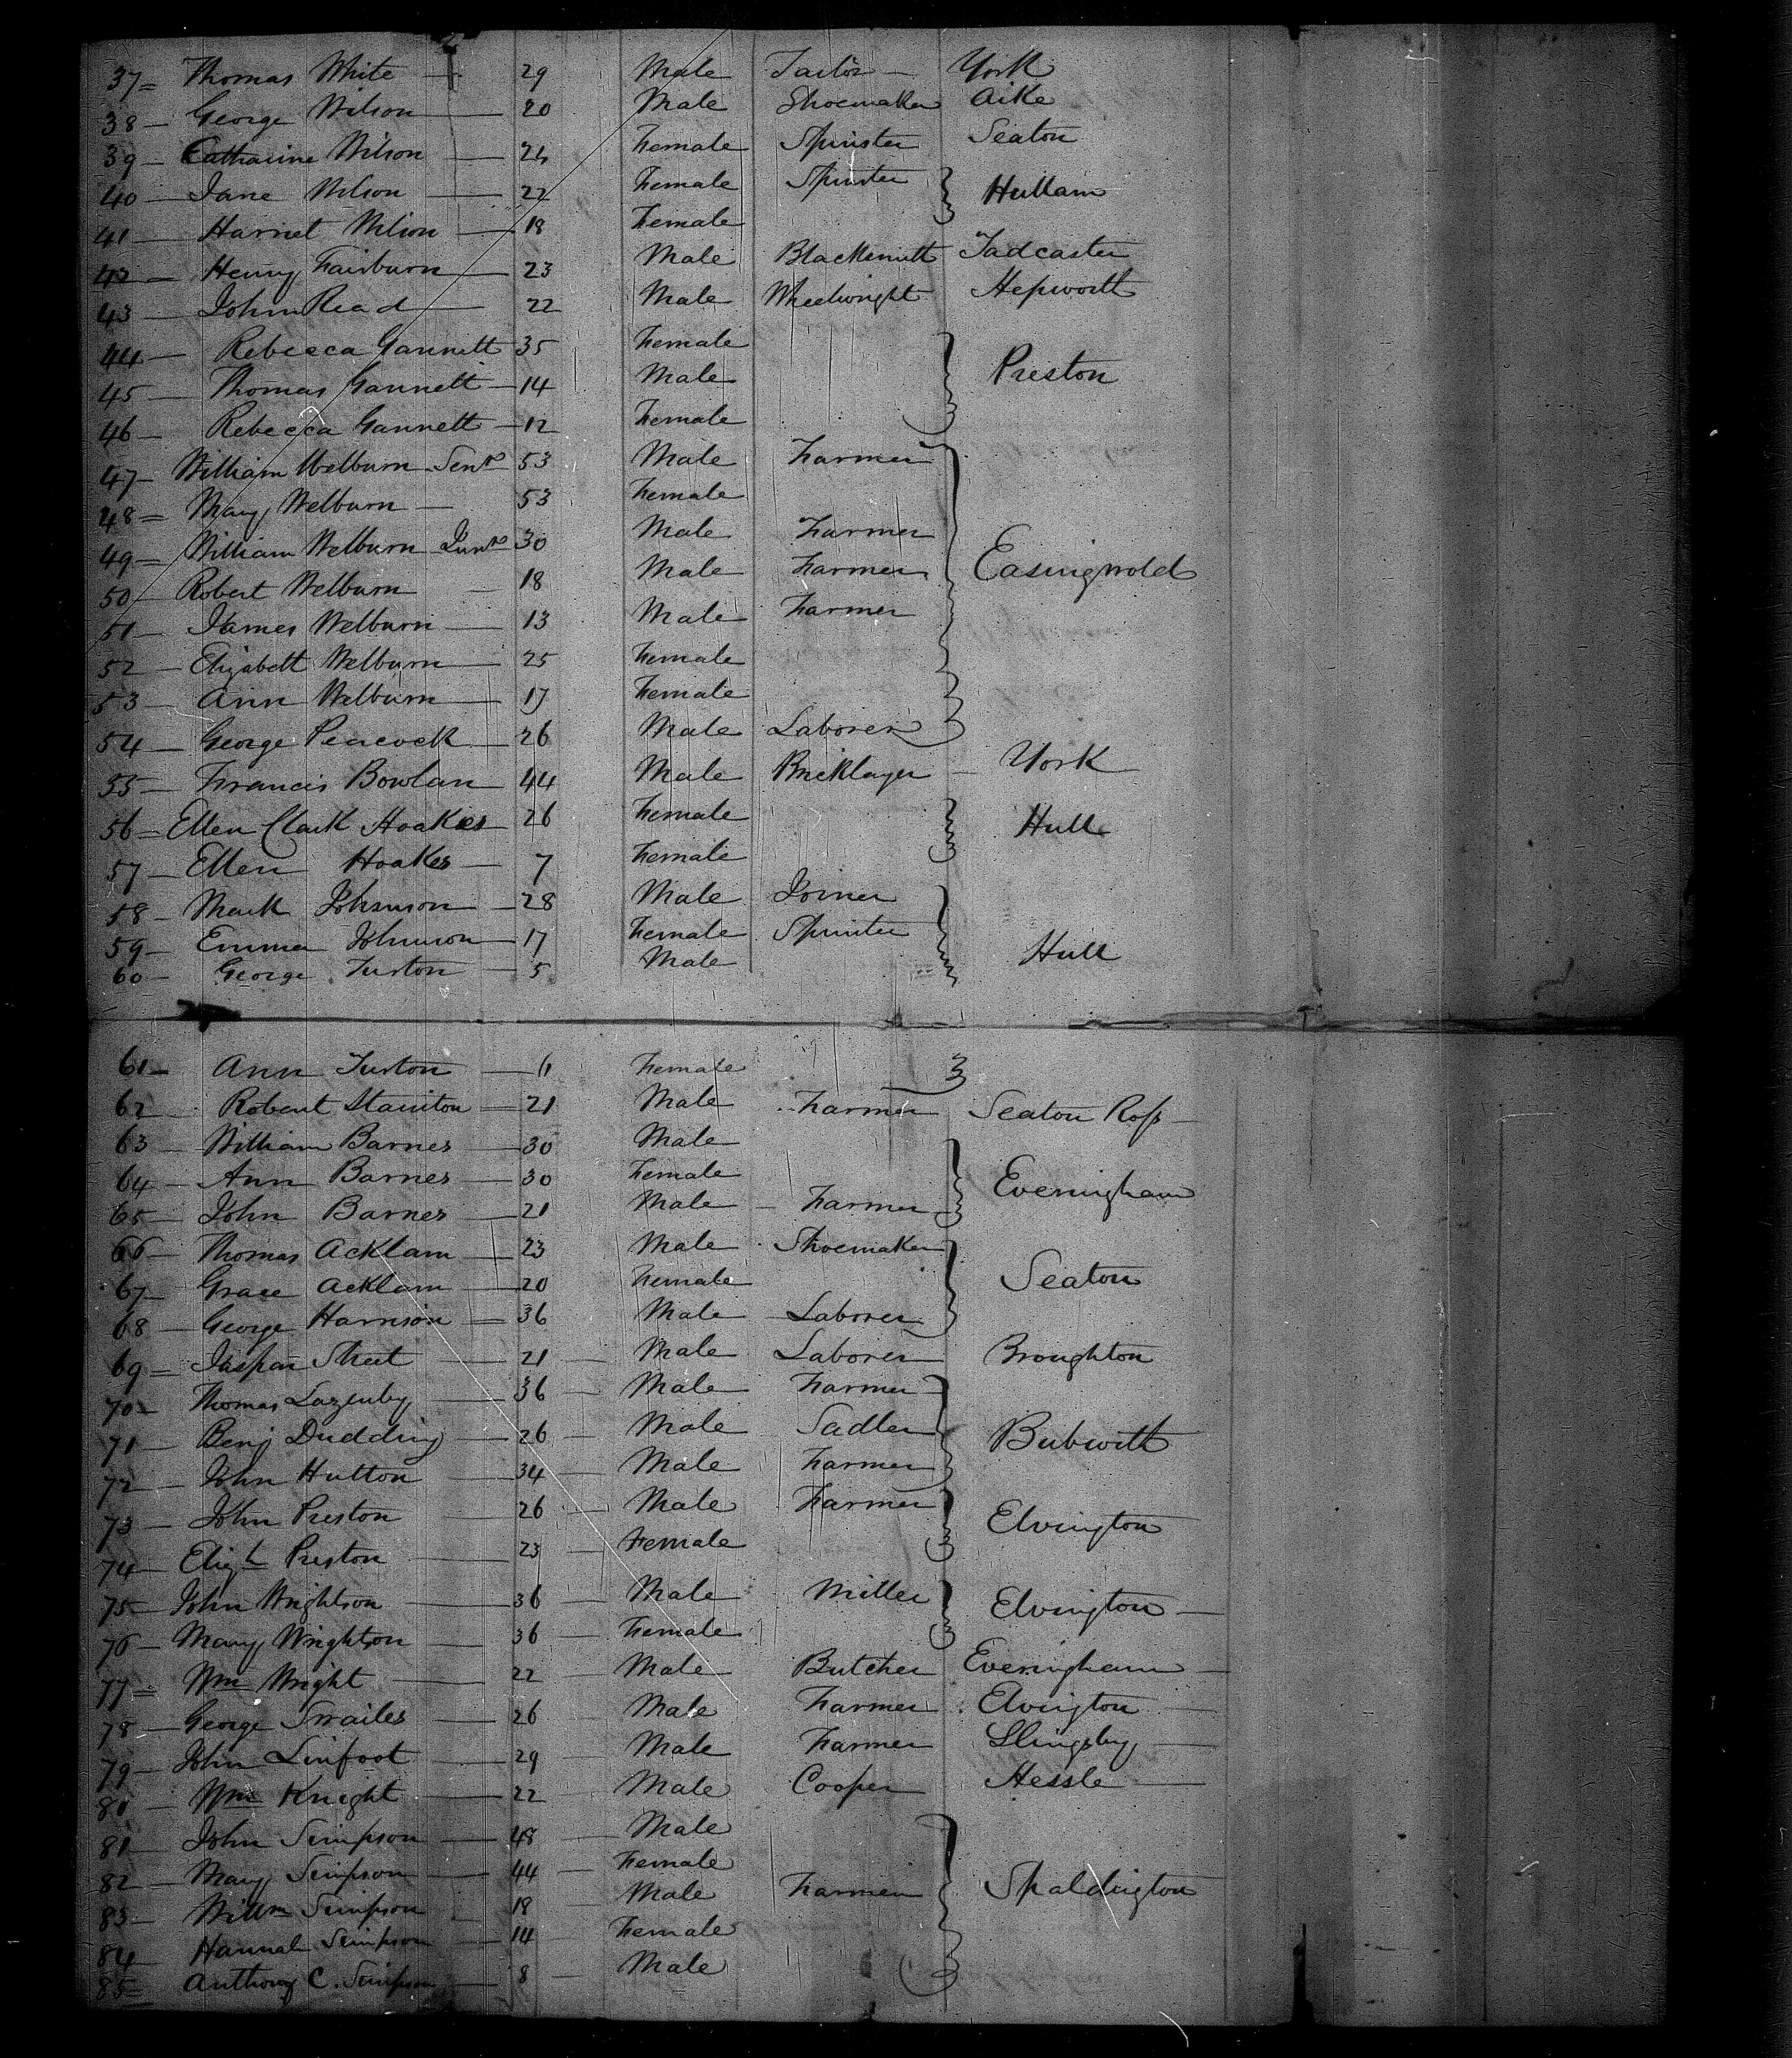 37 = Thomas White — 29 Male Tailor — York
38 — George Wilson — 20 Male Shoemaker Aike
39 — Catharine Wilson — 24 Female Spinster Seaton
40 — Jane Wilson — 22 Female Spinster } Hullam
41 — Harriet Wilson — 18 Female
42 — Henry Fairburn — 23 Male Blacksmith Tadcaster
43 — John Read — 22 Male Wheelwright Hepworth
44 — Rebecca Gannett 35 Female
45 — Thomas Gannett — 14 Male } Preston
46 — Rebecca Gannett — 12 Female
47 — William Welburn Senr 53 Male Farmer
48 = Mary Welburn — 53 Female
49 = William Welburn Junr 30 Male Farmer
50 — Robert Welburn — 18 Male Farmer } Easingwold
51 — James Welburn — 13 Male Farmer
52 — Elizabeth Welburn — 25 Female
53 — Ann Welburn — 17 Female
54 — George Peacock — 26 Male Laborer
55 — Francis Bowlan — 44 Male Bricklayer — York
56 — Ellen Clark Hoakes — 26 Female } Hull
57 — Ellen Hoakes — 7 Female
58 — Mark Johnson — 28 Male Joiner
59 — Emma Johnson — 17 Female Spinster } Hull
60 — George Turton — 5 Male
61 — Ann Turton — Female }
62 — Robert Stainton — 21 Male Farmer Seaton Ross —
63 — William Barnes — 30 Male
64 — Ann Barnes — 30 Female } Everingham
65 — John Barnes — 21 Male — Farmer
66 — Thomas Acklam — 23 Male Shoemaker
67 — Grace Acklam — 20 Female } Seaton
68 — George Harrison — 36 Male Laborer
69 = Jaspar Street — 21 — Male Laborer Broughton
70 — Thomas Lazenby — 36 — Male Farmer
71 — Benj Dudding — 26 — Male Sadler } Bubwith
72 — John Hutton — 34 — Male Farmer
73 — John Preston — 26 — Male Farmer } Elvington
74 — Elizh Preston — 23 — Female
75 — John Wrightson — 36 — Male Miller } Elvington —
76 — Mary Wrightson — 36 — Female
77 = Wm Wright — 22 — Male Butcher Everingham —
78 — George Swailes — 26 — Male Farmer Elvington —
79 — John Linfoot — 29 — Male Farmer Slingsby —
80 — Wm Knight — 22 — Male Cooper Hessle —
81 — John Simpson — 48 — Male
82 — Mary Simpson — 44 — Female
83 — Willm Simpson 18 Male Farmer } Spaldington
84 — Hannah Simpson — 14 — Female
85 = Anthony C. Simpson — 8 — Male